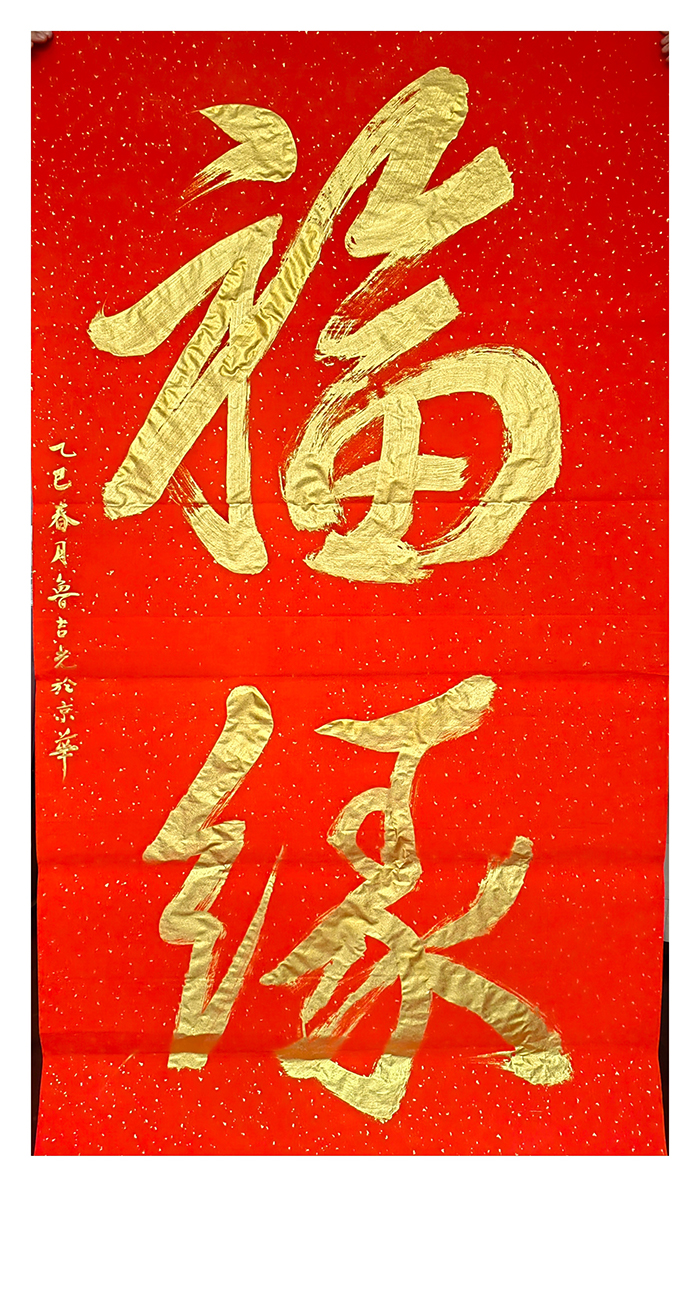 福缘
乙巳春月鲁吉光於京華